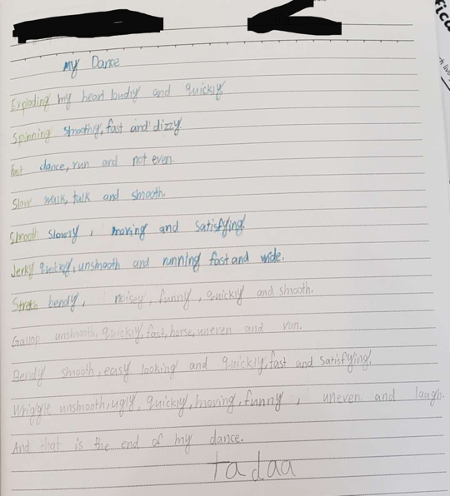 My Dance
Exploding my heart budly and quickly
Spinning smoothly, fast and dizzy
fast dance, run and not even.
Slow walk, talk and smooth.
Smooth slowly, moving and satisfying
Jerky quickly, unsmooth and running fast and wide.
bendy, noisy, funny, quickly and smooth.
Gallop unsmooth, quickly, fast, horse, uneven and run.
Bendy smooth, easy looking and quickly, fast and satisfying
Wriggle unsmooth, ugly, quickly, moving, funny, uneven and laugh.
And that is the end of my dance.
tadaa